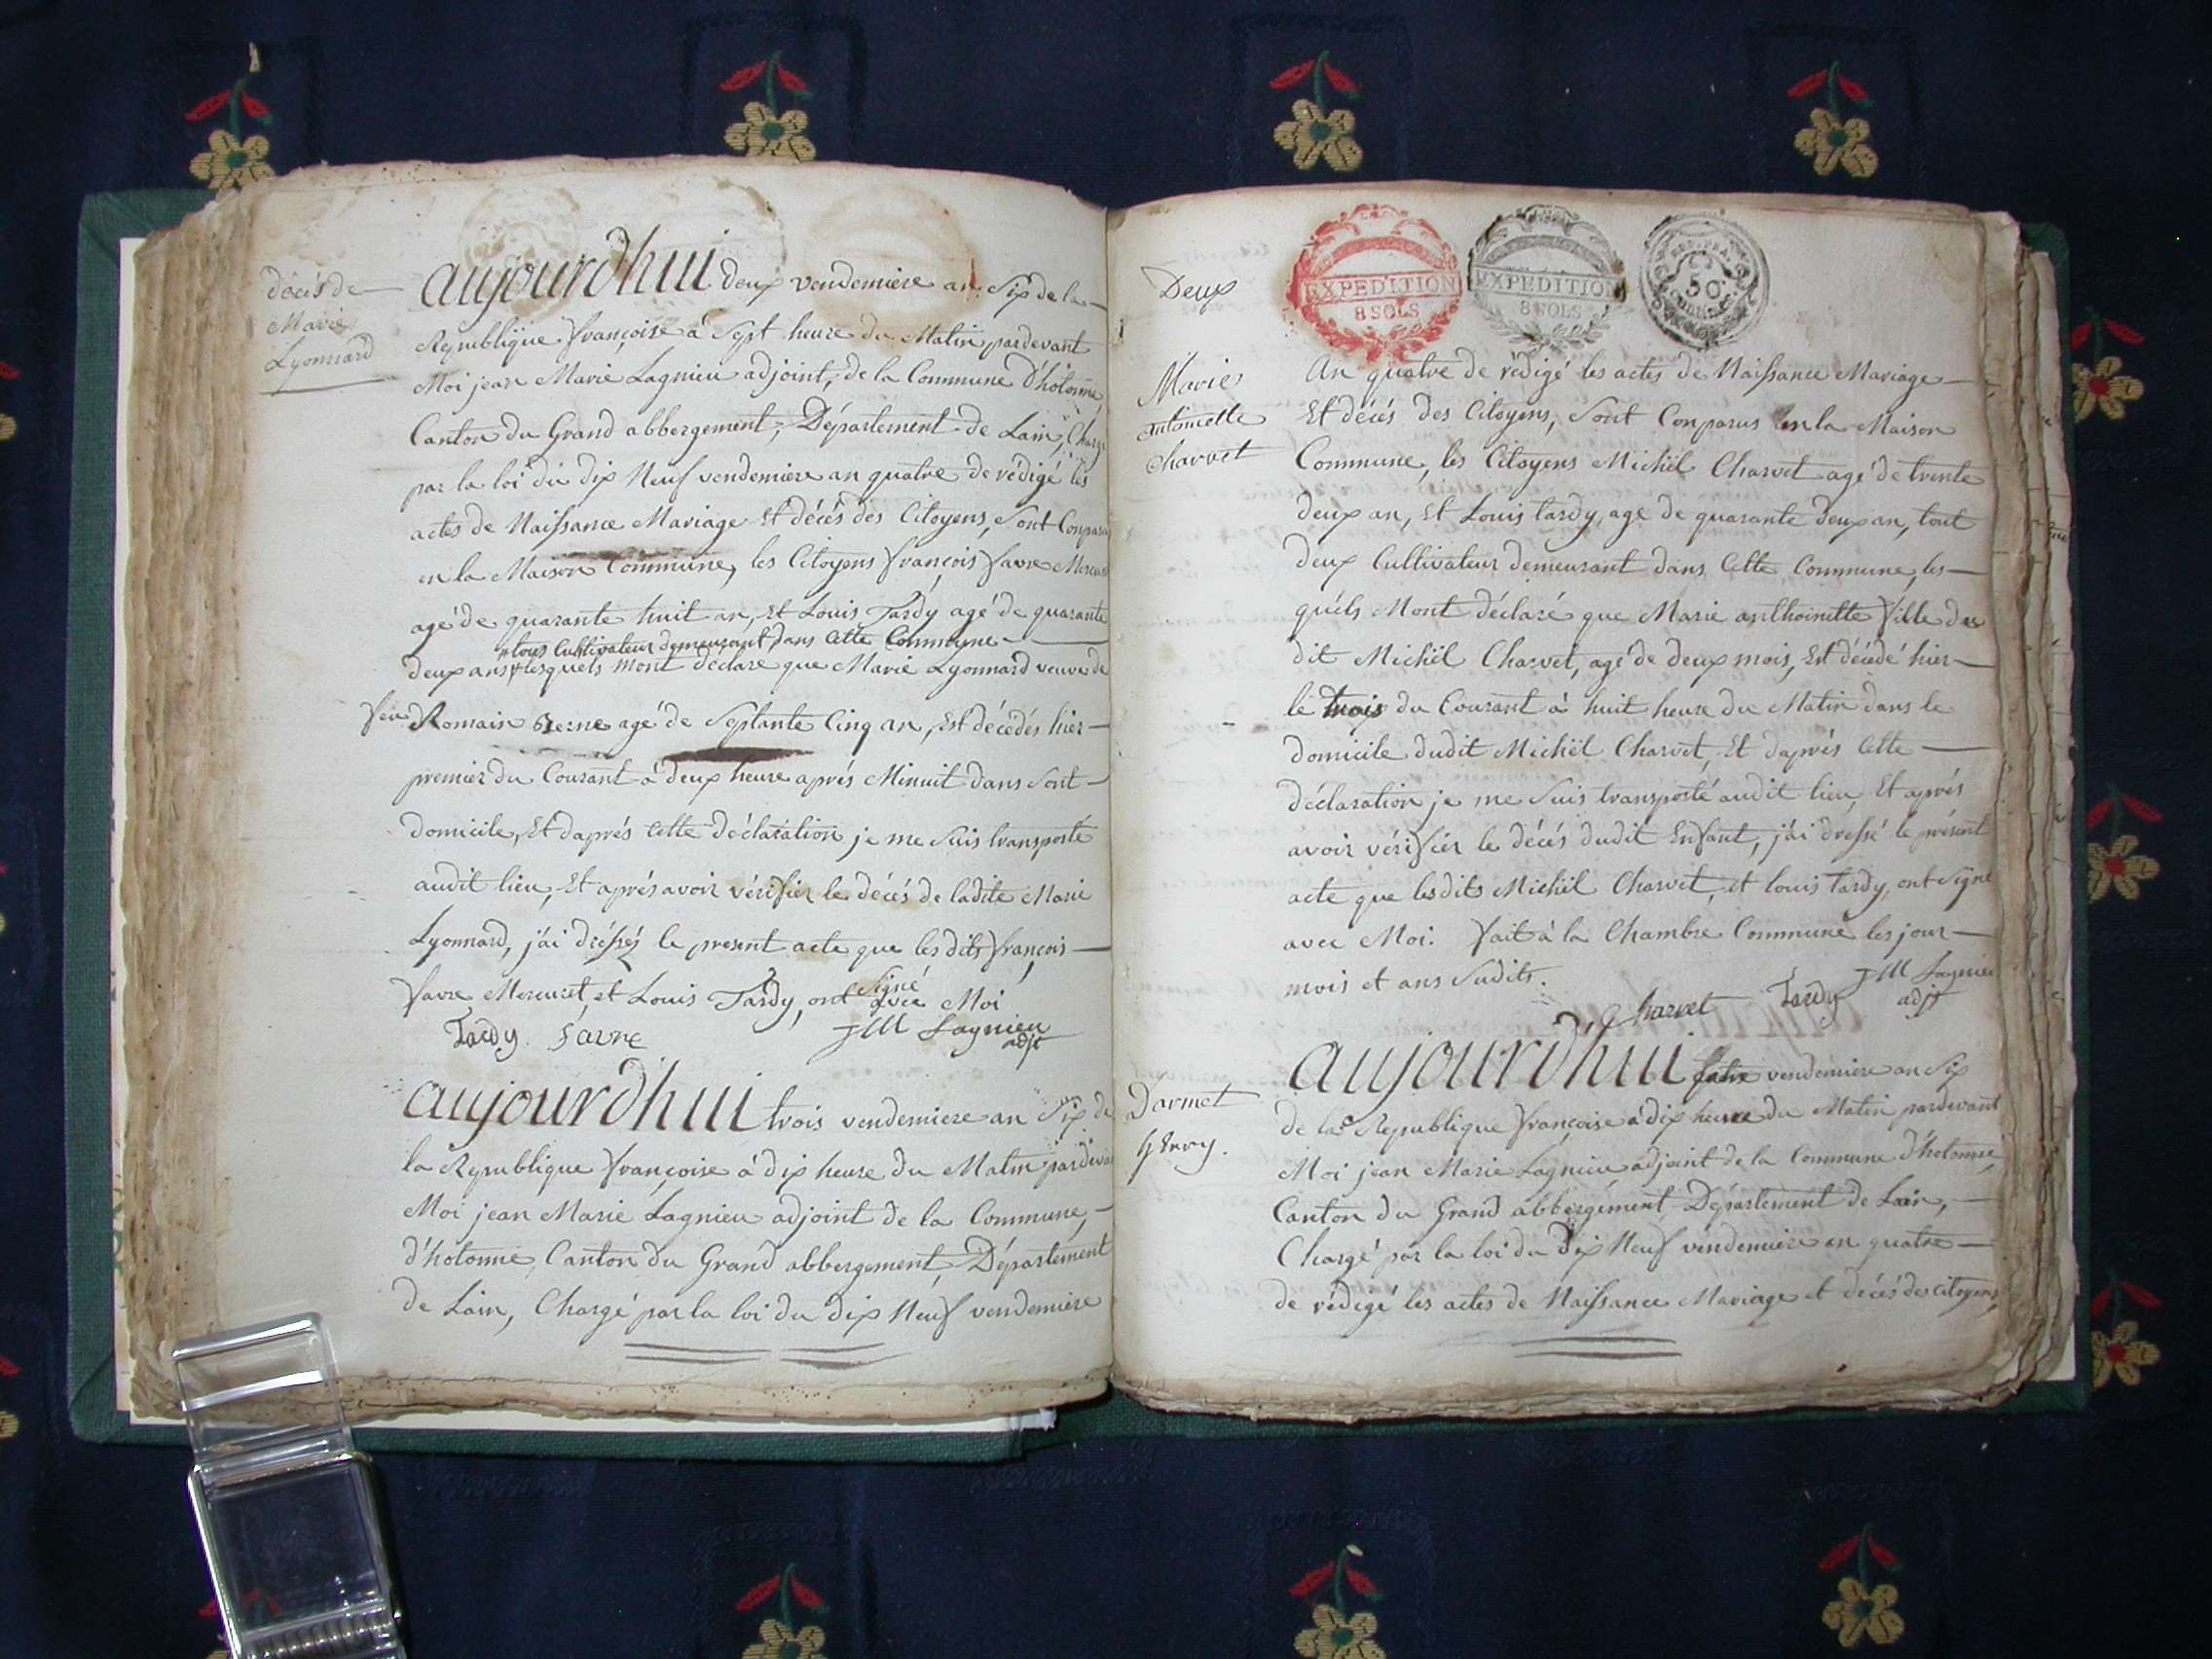 décés de
Marie
Lyonnard
aujourdhui deux vendemiere an Six de la
Republique françoise à Sept heure du Matin pardevant
Moi jean Marie Lagnieu adjoint, de la Commune D'hotonne
Canton du Grand abbergement, Département de Lain, Chargé
par la loi du dix Neuf vendemiere an quatre de rédigé les
actes de Naissance Mariage Et décés des Citoyens, Sont Conparus
en la Maison Commune, les Citoyens françois favre Mercuret
agé de quarante huit an, Et Louis Tardy agé de quarante
tous Cultivateur demeurant dans Cette Commune
deux ans lesquels mont déclaré que Marie Lyonnard veuve de
feu Romain Berne agé de Septante Cinq an, Est décédés hier
premier du Courant à deux heure aprés Minuit dans Sont
domicile, Et daprés Cette déclaration je me Suis transporté
audit lieu, Et aprés avoir vérifier le décés de ladite Marie
Lyonnard, j'ai dréssés le present acte que les dits françois
favre Mercuret, et Louis Tardy, ont Signé avec Moi
Tardy favre JM Lagnieu
adjt
aujourdhui trois vendemiere an Six de
la Republique françoise à dix heure du Matin pardevant
Moi jean Marie Lagnieu adjoint de la Commune,
d'hotonne, Canton du Grand abbergement, Département
de Lain, Chargé par la loi du dix Neuf vendemiere
Deux
EXPEDITION
8 SOLS
EXPEDITION
8 SOLS
REP. FRA.
50
CENTIMES
Marie
antoinette
Charvet
An quatre de rédigé les actes de Naissance Mariage
Et décés des Citoyens, Sont Conparus en la Maison
Commune, les Citoyens Michël Charvet agé de trente
deux an, Et Louis tardy, age de quarante deux an, tout
deux Cultivateur demeurant dans Cette Commune, les
quéls Mont déclaré que Marie anthoinette fille du
dit Michël Charvet, agé de deux mois, Est décedé hier
le trois du Courant à huit heure du Matin dans le
domicile dudit Michël Charvet, Et daprés Cette
déclaration je me Suis transporté audit lieu, Et aprés
avoir vérifier le décés dudit Enfant, j'ai dressé le présent
acte que lesdits Michël Charvet, et louis tardy, ont Signé
avec Moi. fait à la Chambre Commune les jour
mois et ans Sudits.
Charvet Tardy JM Lagnieu
adjt
Darmet
aujourd'hui vendemiere an Six
de la Republique françoise à dix heure du Matin pardevant
Moi jean Marie Lagnieu adjoint de la Commune D'hotonne,
Canton du Grand abbergement, Département de Lain,
Chargé par la loi du dix Neuf vendemiere an quatre
de rédigé les actes de Naissance Mariage et décés des citoyens,